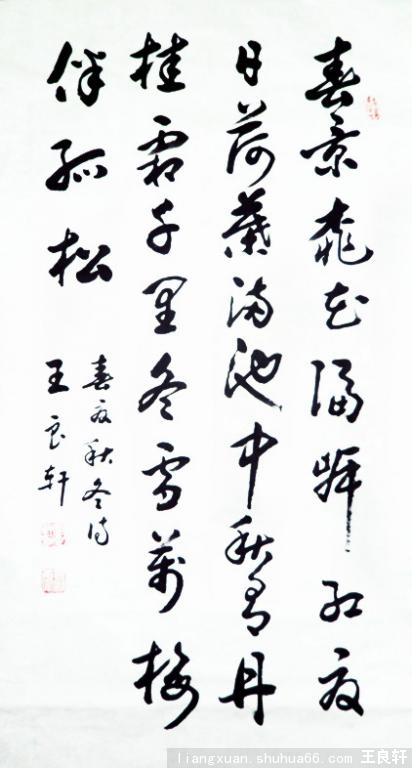 春景桃花隔岸红夏
日荷葉满池中秋有丹
桂霜千里冬雪萬梅
伴孤松
春夏秋冬诗
王良轩
liangxuan.shuhua66.com 王良轩